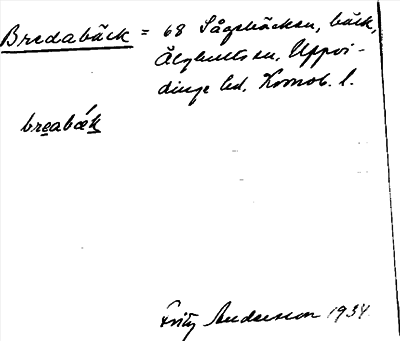 Bredabäck = 68 Sågebäcken, bäck,
Älghults sn, Uppvi-
dinge hd, Kronob. l.
breabǽk
Fritz Andersson 1934.